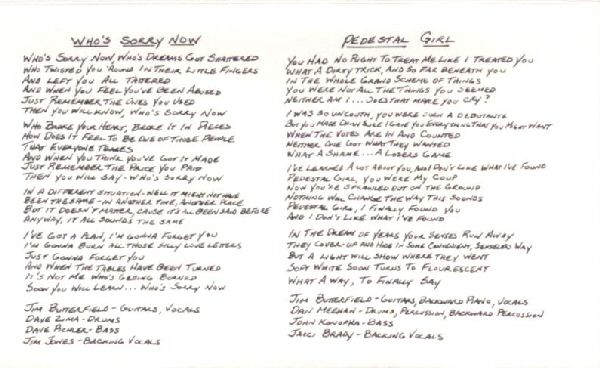 WHO'S SORRY NOW
WHO'S SORRY NOW, WHO'S DREAMS GOT SHATTERED
WHO TWISTED YOU 'ROUND IN THEIR LITTLE FINGERS
AND LEFT YOU ALL TATTERED
AND WHEN YOU FEEL YOU'VE BEEN ABUSED
JUST REMEMBER THE ONES YOU USED
THEN YOU WILL KNOW, WHO'S SORRY NOW
WHO BROKE YOUR HEART, BROKE IT IN PIECES
HOW DOES IT FEEL TO BE ONE OF THOSE PEOPLE
THAT EVERYONE TEASES
AND WHEN YOU THINK YOU'VE GOT IT MADE
JUST REMEMBER THE PRICE YOU PAID
THEN YOU WILL SAY - WHO'S SORRY NOW
IN A DIFFERENT SITUATION - WELL IT MIGHT NOT HAVE
BEEN THE SAME - IN ANOTHER TIME, ANOTHER PLACE
BUT IT DOESN'T MATTER, CAUSE IT'S ALL BEEN SAID BEFORE
ANYWAY, IT ALL SOUNDS THE SAME
I'VE GOT A PLAN, I'M GONNA FORGET YOU
I'M GONNA BURN ALL THOSE SILLY LOVE LETTERS
JUST GONNA FORGET YOU
AND WHEN THE TABLES HAVE BEEN TURNED
IT'S NOT ME WHO'S GETTING BURNED
SOON YOU WILL LEARN... WHO'S SORRY NOW
JIM BUTTERFIELD - GUITARS, VOCALS
DAVE ZIMA - DRUMS
DAVE PICHLER - BASS
JIM JONES - BACKING VOCALS
PEDESTAL GIRL
YOU HAD NO RIGHT TO TREAT ME LIKE I TREATED YOU
WHAT A DIRTY TRICK, AND SO FAR BENEATH YOU
IN THE WHOLE GRAND SCHEME OF THINGS
YOU WERE NOT ALL THE THINGS YOU SEEMED
NEITHER AM I... DOES THAT MAKE YOU CRY?
I WAS SO UNCOUTH, YOU WERE SUCH A DEBUTANTE
BUT YOU MADE ME I GAVE YOU EVERYTHING THAT YOU MIGHT WANT
WHEN THE VOTES ARE IN AND COUNTED
NEITHER ONE GOT WHAT THEY WANTED
WHAT A SHAME... A LOSERS GAME
I'VE LEARNED A LOT ABOUT YOU, AND I DON'T LIKE WHAT I'VE FOUND
PEDESTAL GIRL, YOU WERE MY COUP
NOW YOU'RE SPRAWLED OUT ON THE GROUND
NOTHING WILL CHANGE THE WAY THIS SOUNDS
PEDESTAL GIRL, I FINALLY FOUND YOU
AND I DON'T LIKE WHAT I'VE FOUND
IN THE DREAM OF YEARS YOUR SENSES RUN AWAY
THEY COVER-UP AND HIDE IN SOME CONVENIENT, SENSELESS WAY
BUT A LIGHT WILL SHOW WHERE THEY WENT
SOFT WHITE SOON TURNS TO FLOURESCENT
WHAT A WAY, TO FINALLY SAY
JIM BUTTERFIELD - GUITARS, BACKWARD PIANO, VOCALS
DAN MEEHAN - DRUMS, PERCUSSION, BACKWARD PERCUSSION
JOHN KONOPKA - BASS
JAICI BRADY - BACKING VOCALS